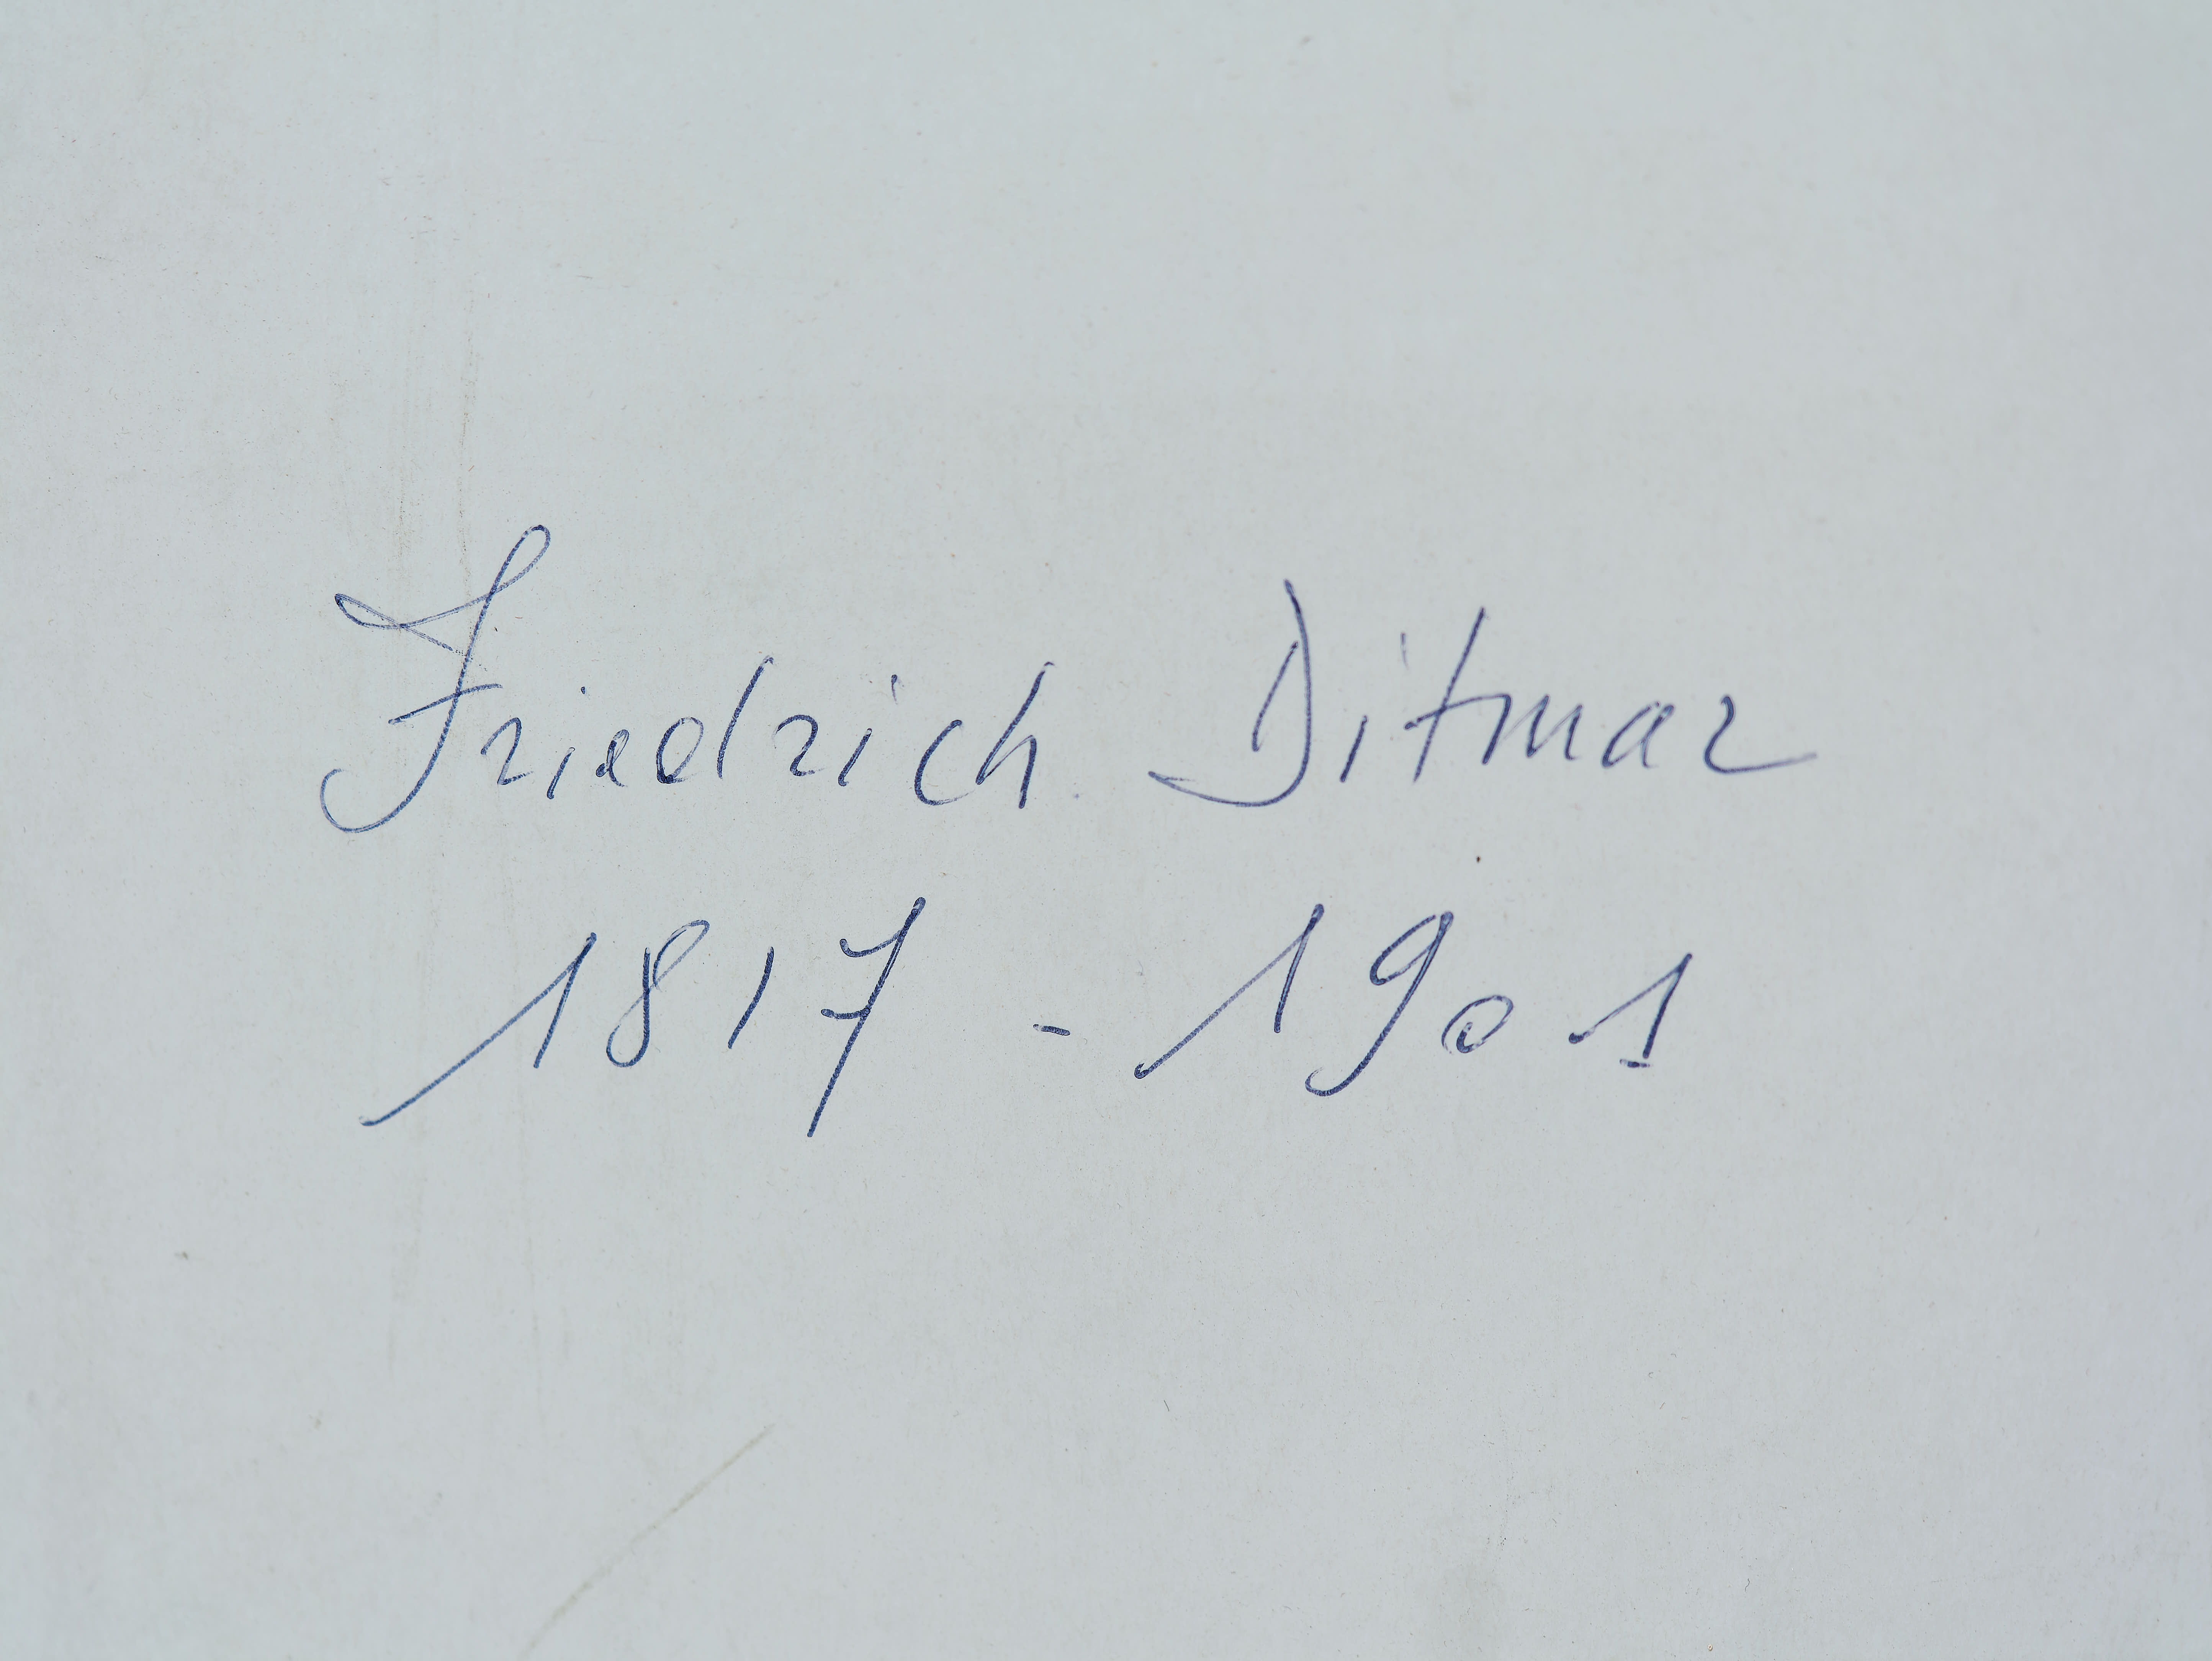 Friedrich Ditmar
1817 - 1901